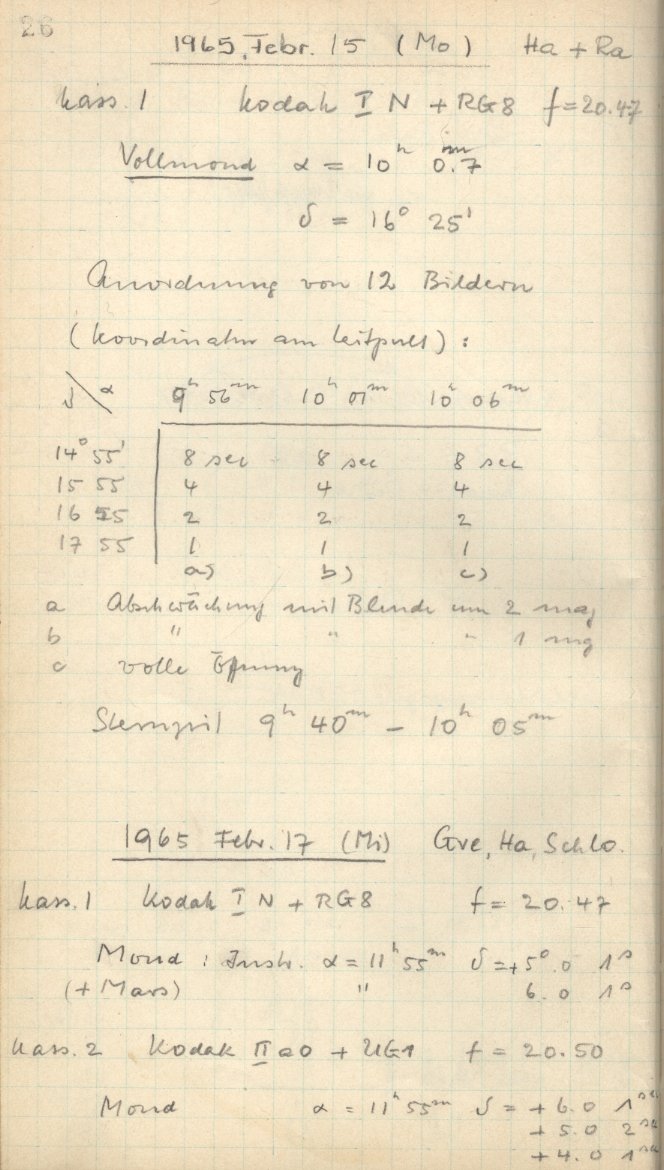 26
1965, Febr. 15 (Mo) Ha + Ra
Kass. 1 Kodak I N + RG8 f = 20.47
Vollmond α = 10ʰ 0.7ᵐ
δ = 16° 25'
Anordnung von 12 Bildern
(Koordinaten am Leitpult) :
δ \ α 9ʰ 56ᵐ 10ʰ 01ᵐ 10ʰ 06ᵐ
14° 55' 8 sec 8 sec 8 sec
15 55 4 4 4
16 55 2 2 2
17 55 1 1 1
a) b) c)
a Abschwächung mit Blende um 2 mag
b " " " 1 mg
c volle Öffnung
Sternzeit 9ʰ 40ᵐ – 10ʰ 05ᵐ
1965 Febr. 17 (Mi) Gve, Ha, Schlo.
Kass. 1 Kodak I N + RG8 f = 20.47
Mond : Instr. α = 11ʰ 55ᵐ δ = +5°.0 1ˢ
(+ Mars) " 6.0 1ˢ
Kass. 2 Kodak II a0 + UG1 f = 20.50
Mond α = 11ʰ 55ᵐ δ = + 6.0 1ˢᵉᶜ
+ 5.0 2ˢᵉᶜ
+ 4.0 1ˢᵉᶜ